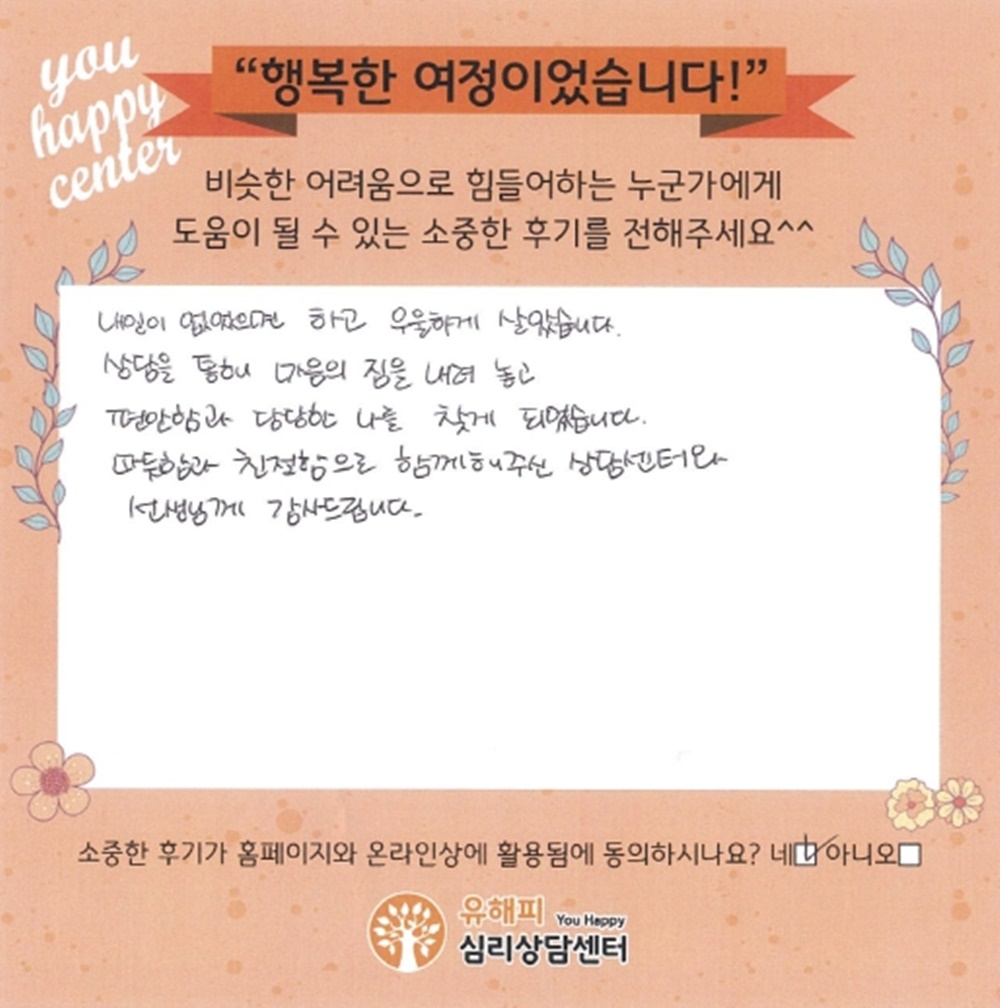 you
happy
center
“행복한 여정이었습니다!”
비슷한 어려움으로 힘들어하는 누군가에게
도움이 될 수 있는 소중한 후기를 전해주세요^^
내일이 없었으면 하고 우울하게 살았습니다.
상담을 통해 마음의 짐을 내려 놓고
편안함과 당당한 나를 찾게 되었습니다.
따뜻함과 친절함으로 함께해주신 상담센터와
선생님께 감사드립니다.
소중한 후기가 홈페이지와 온라인상에 활용됨에 동의하시나요? 네☑ 아니오☐
유해피 You Happy
심리상담센터